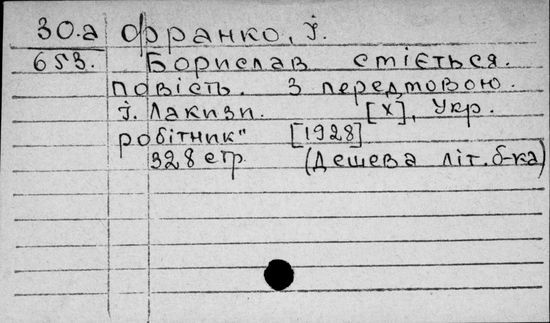 30.а Франко, І.
653. Борислав сміється.
повість. З передмовою.
І. Лакизи. [Х], Укр.
робітник" [1928]
328 стр. (Дешева літ. б-ка)